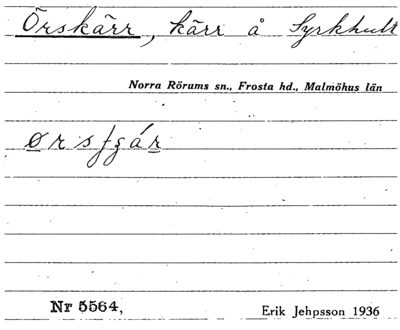 Örskärr, kärr å Syrkhult
Norra Rörums sn., Frosta hd., Malmöhus län
Nr 5564,
Erik Jehpsson 1936